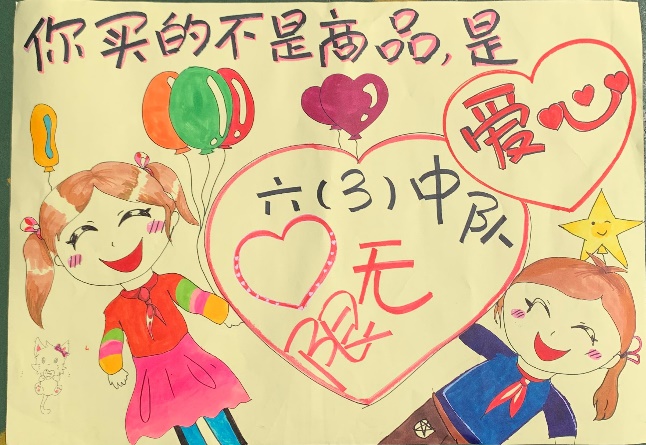 你买的不是商品,是
爱心
六(3)中队
无
限